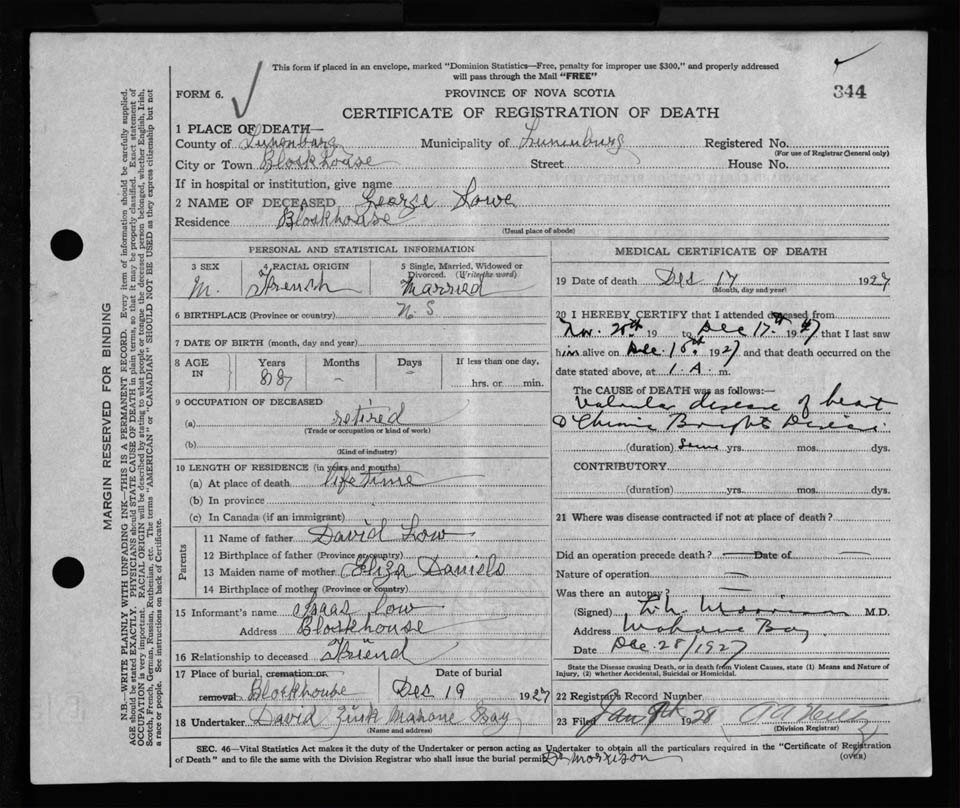 This form if placed in an envelope, marked "Dominion Statistics—Free, penalty for improper use $300," and properly addressed
will pass through the Mail "FREE"
344
FORM 6.
PROVINCE OF NOVA SCOTIA
CERTIFICATE OF REGISTRATION OF DEATH
1 PLACE OF DEATH—
County of Lunenburg Municipality of Lunenburg Registered No.
(For use of Registrar General only)
City or Town Blockhouse Street House No.
If in hospital or institution, give name
2 NAME OF DECEASED George Lowe
Residence Blockhouse
(Usual place of abode)
PERSONAL AND STATISTICAL INFORMATION
3 SEX M. 4 RACIAL ORIGIN French 5 Single, Married, Widowed or Divorced. (Write the word) Married
6 BIRTHPLACE (Province or country) N. S
7 DATE OF BIRTH (month, day and year)
8 AGE IN Years 87 Months - Days - If less than one day, hrs. or min.
9 OCCUPATION OF DECEASED
(a) retired
(Trade or occupation or kind of work)
(b)
(Kind of industry)
10 LENGTH OF RESIDENCE (in years and months)
(a) At place of death lifetime
(b) In province
(c) In Canada (if an immigrant)
Parents
11 Name of father David Low
12 Birthplace of father (Province or country)
13 Maiden name of mother Eliza Daniels
14 Birthplace of mother (Province or country)
15 Informant's name Isaac Low
Address Blockhouse
16 Relationship to deceased Friend
17 Place of burial, cremation or removal Blockhouse Date of burial Dec 19 1927
18 Undertaker David Zink Mahone Bay
(Name and address)
MEDICAL CERTIFICATE OF DEATH
19 Date of death Dec 17 1927
(Month, day and year)
20 I HEREBY CERTIFY that I attended deceased from
Nov. 28th 19 to Dec 17th 1927 that I last saw
him alive on Dec. 16th 1927 and that death occurred on the
date stated above, at 1. A. m.
The CAUSE of DEATH was as follows:—
Valvular disease of heart
& Chronic Brights Disease
(duration) Some yrs. mos. dys.
CONTRIBUTORY
(duration) yrs. mos. dys.
21 Where was disease contracted if not at place of death?
Did an operation precede death? — Date of —
Nature of operation —
Was there an autopsy? —
(Signed) Morrison M.D.
Address Mahone Bay
Date Dec. 28/1927
State the Disease causing Death, or in death from Violent Causes, state (1) Means and Nature of
Injury, (2) whether Accidental, Suicidal or Homicidal.
22 Registrar's Record Number
23 Filed Jan 1928
(Division Registrar)
SEC. 46—Vital Statistics Act makes it the duty of the Undertaker or person acting as Undertaker to obtain all the particulars required in the "Certificate of Registration
of Death" and to file the same with the Division Registrar who shall issue the burial permit. Dr Morrison
(OVER)
MARGIN RESERVED FOR BINDING
N.B.—WRITE PLAINLY WITH UNFADING INK—THIS IS A PERMANENT RECORD. Every item of information should be carefully supplied.
AGE should be stated EXACTLY. PHYSICIANS should STATE CAUSE OF DEATH in plain terms, so that it may be properly classified. Exact statement of
OCCUPATION is very important. RACIAL ORIGIN will be described by stating to what people or tongue the deceased person belonged, whether English, Irish,
Scotch, French, German, Russian, Ruthenian, etc. The terms "AMERICAN" or "CANADIAN" SHOULD NOT BE USED as they express citizenship but not
a race or people. See instructions on back of Certificate.